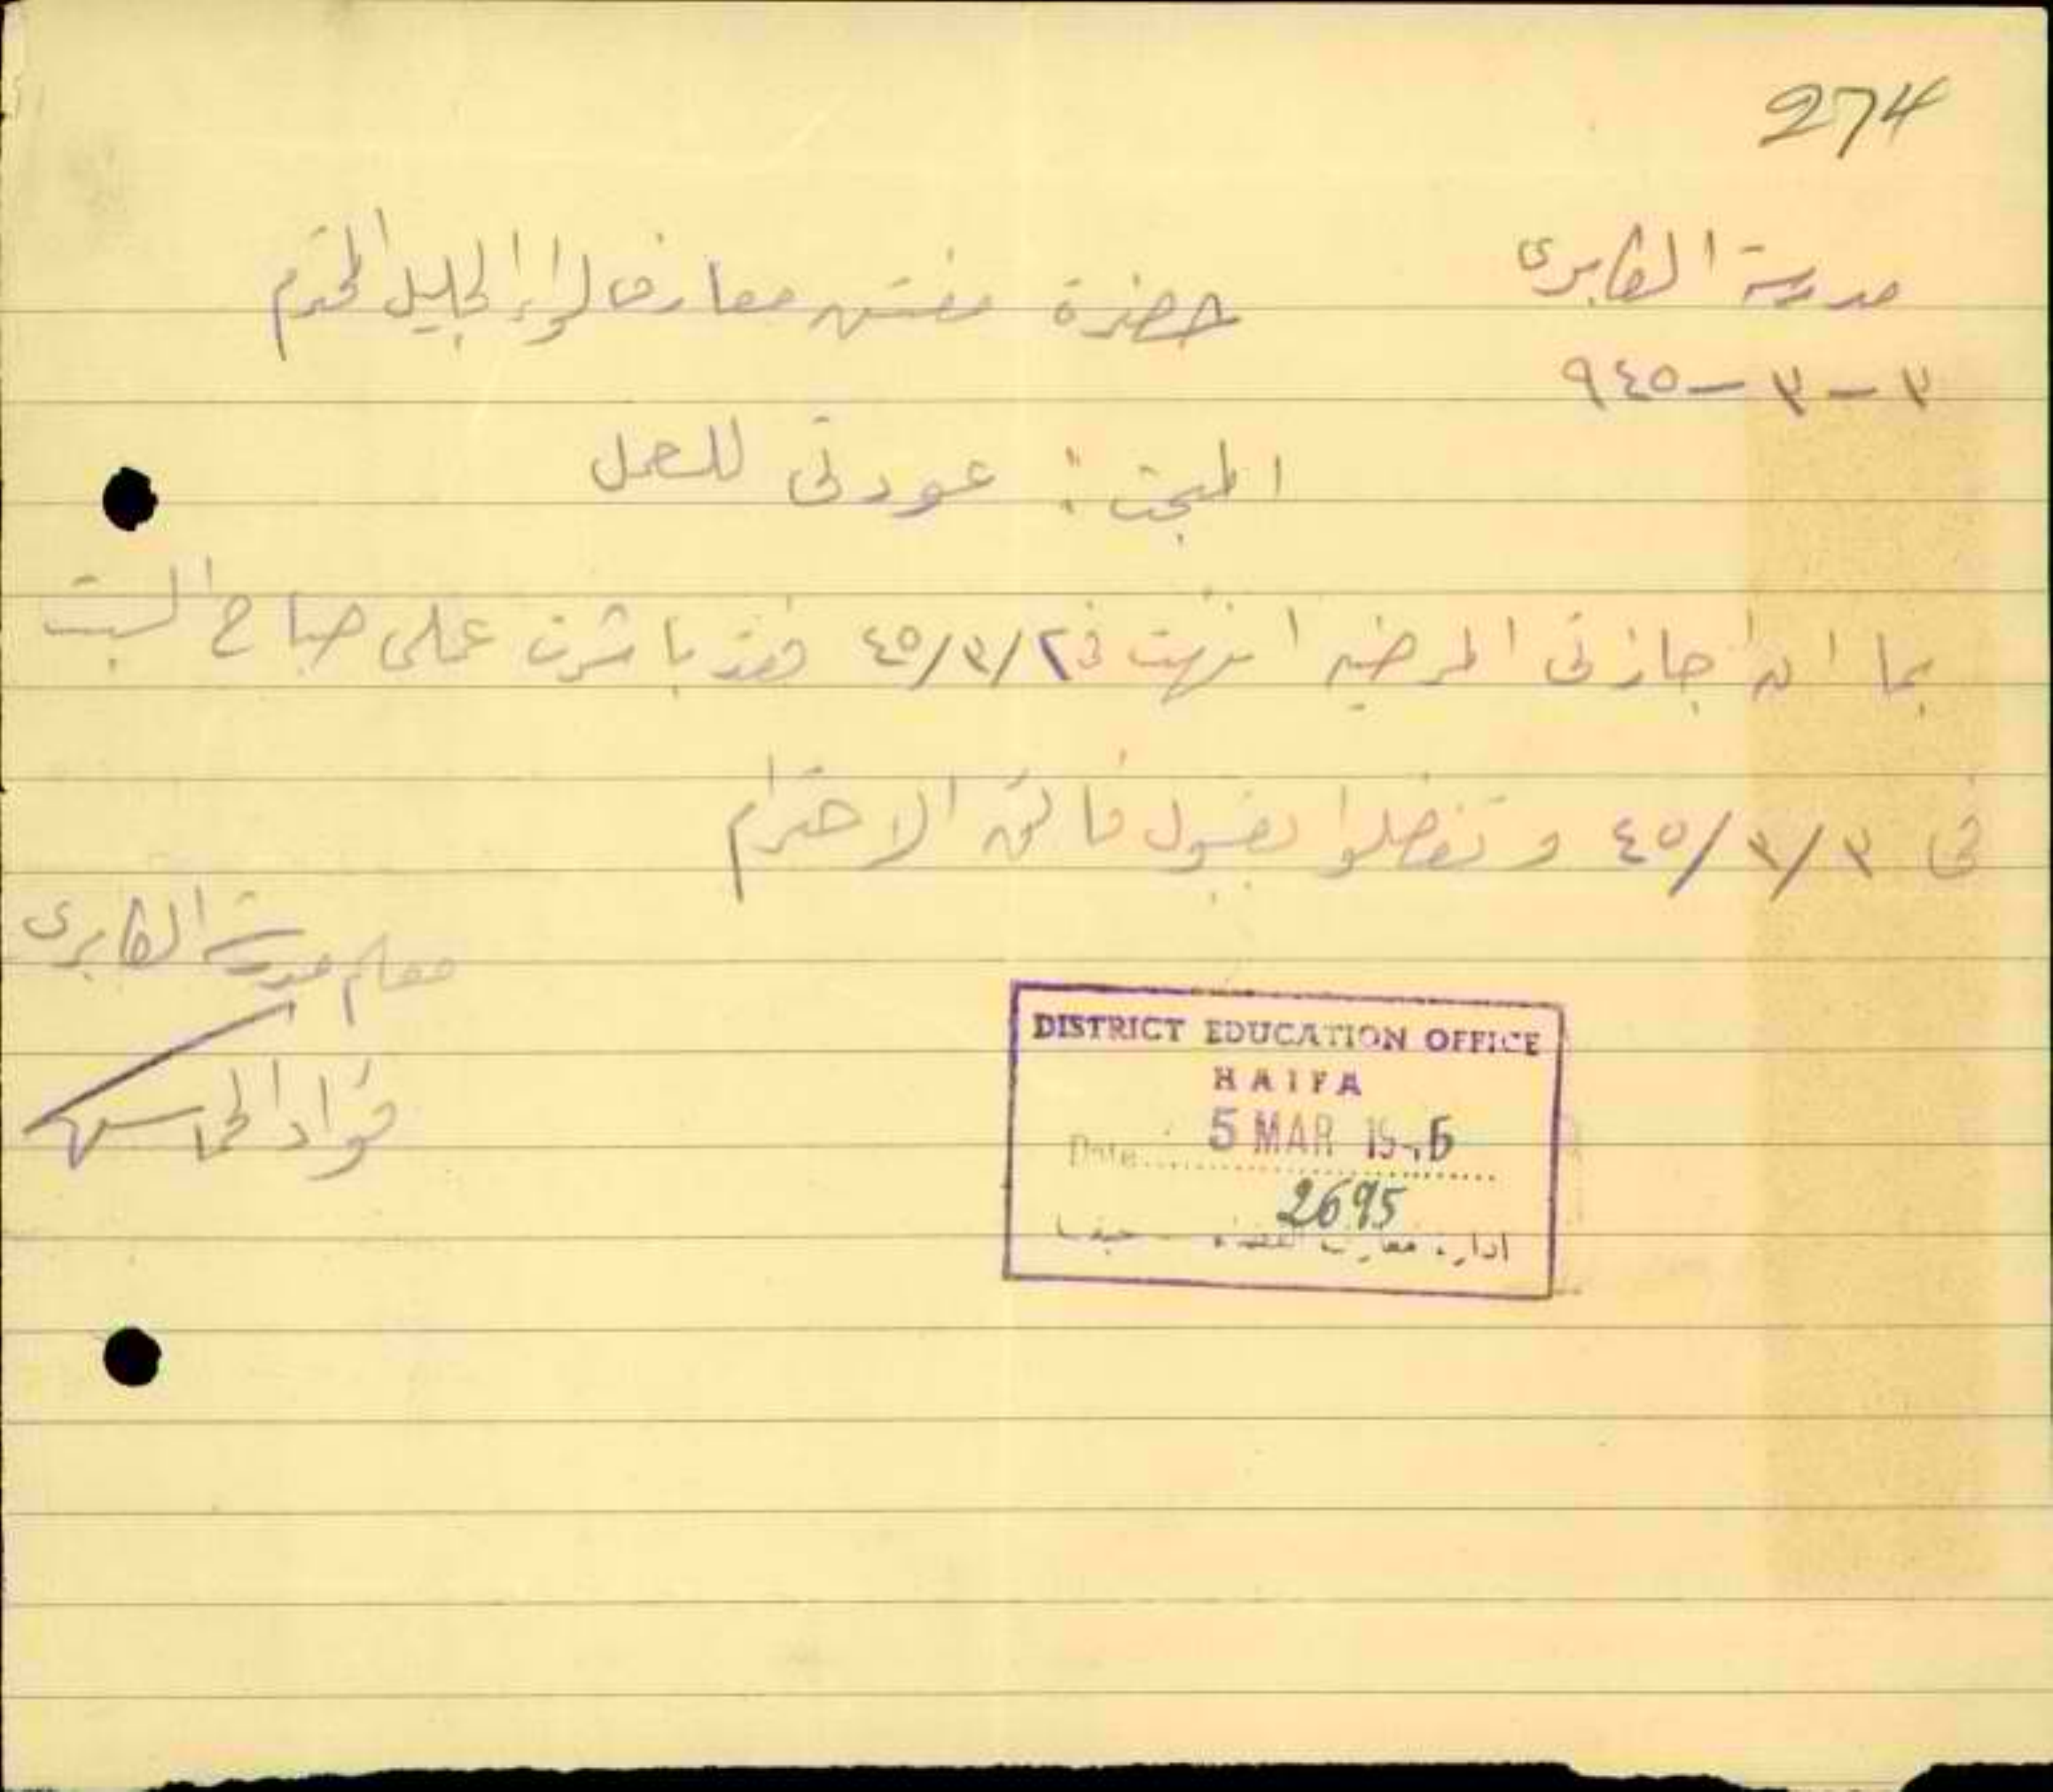 274
مدرسة الكابري
٣-٣-٩٤٥
حضرة مفتش معارف لواء الجليل المحترم
المبحث: عودتي للعمل
بما ان اجازتي المرضيه انتهت في ٤٥/٣/٢ فقد باشرت عملي صباح السبت
في ٤٥/٣/٣ و تفضلوا بقبول فائق الاحترام
معلم مدرسة الكابري
فؤاد
DISTRICT EDUCATION OFFICE
HAIFA
Date 5 MAR
2695
ادارة معارف حيفا